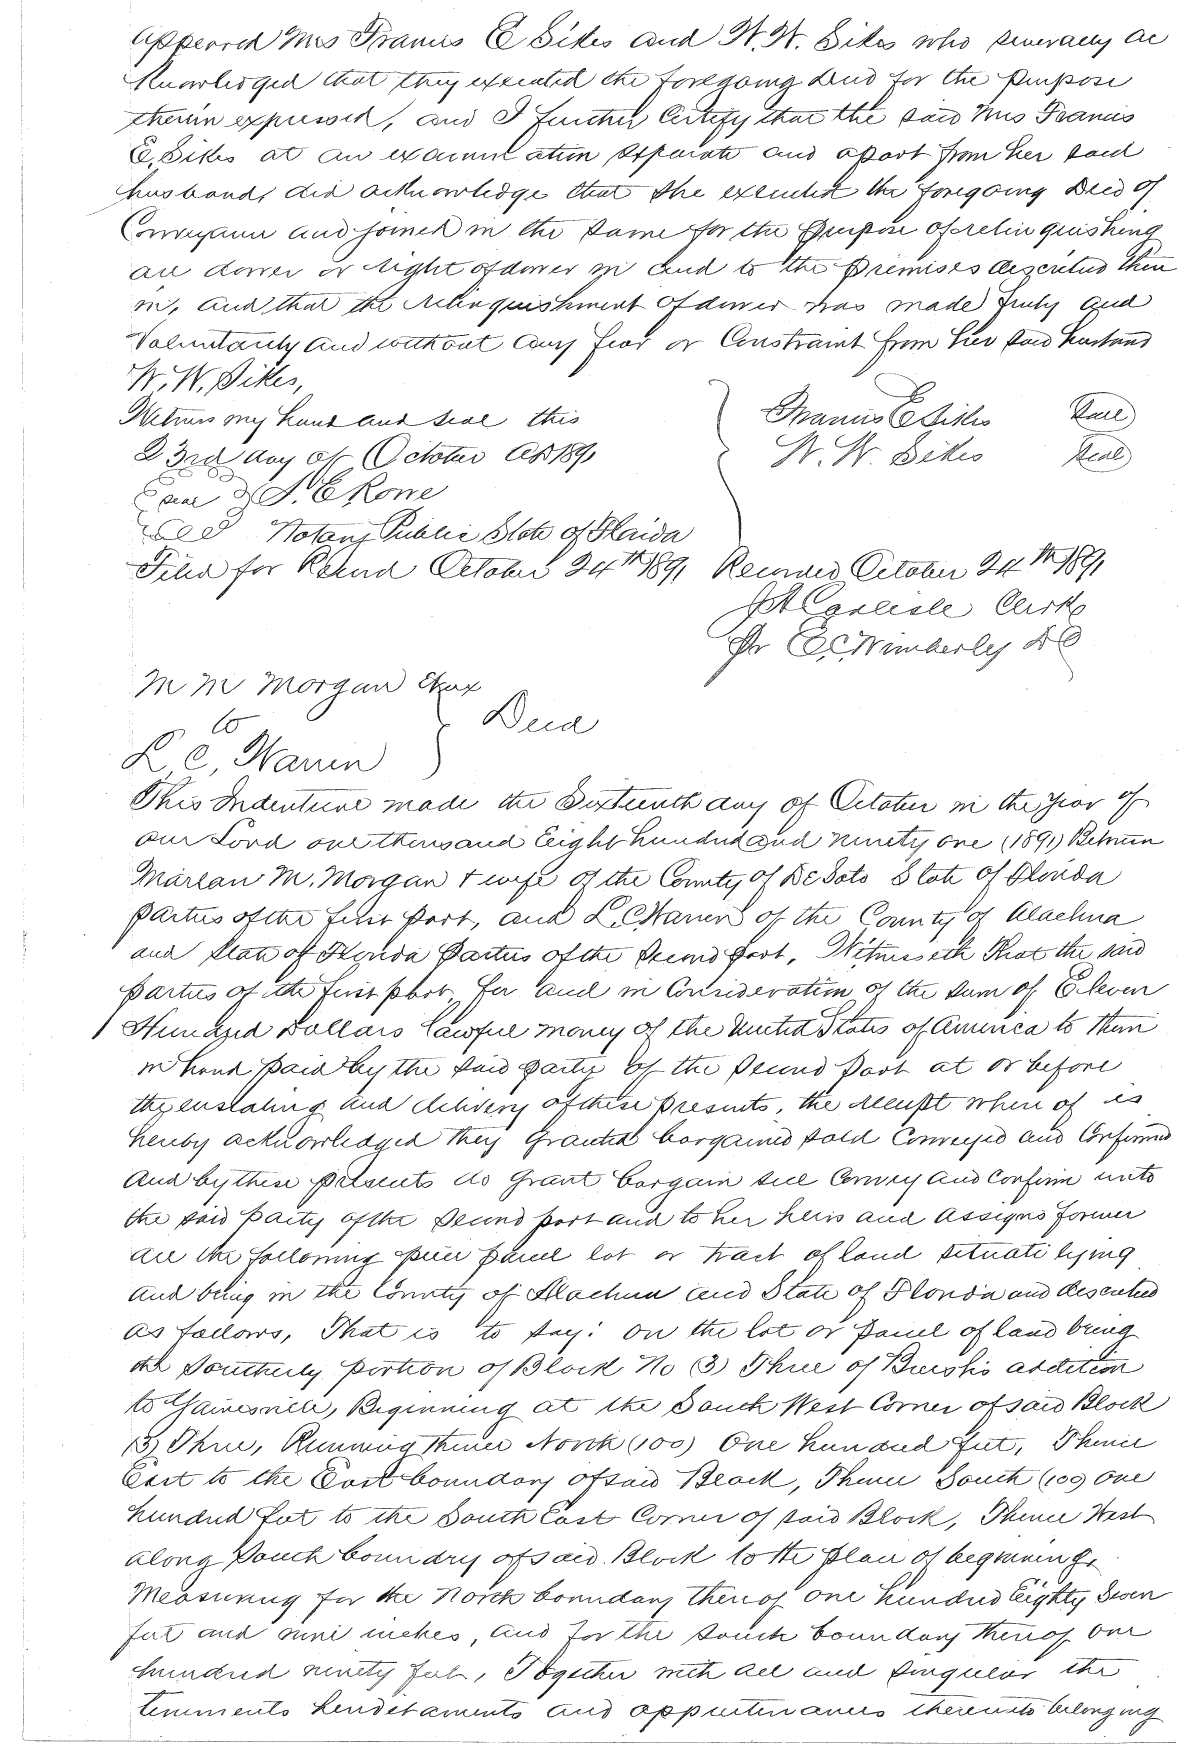 appeared Mrs Francis E Sikes and W. W. Sikes who severally ac
knowledged that they executed the foregoing deed for the purpose
therein expressed, and I further Certify that the said Mrs Francis
E, Sikes at an examination separate and apart from her said
husband, did acknowledge that she executed the foregoing Deed of
Conveyance and joined in the same for the purpose of relinquishing
all dower or right of dower in and to the premises described there
in, and that the relinquishment of dower was made freely and
Voluntarily and without any fear or Constraint from her said husband
W. W. Sikes,
Witness my hand and seal this
23rd day of October AD 1891
Francis E Sikes Seal
W. W. Sikes Seal
Seal E Rowe
Notary Public State of Florida
Filed for Record October 24th 1891 Recorded October 24th 1891
Carlisle Clerk
Pr E. C. Wimberly DC
M M Morgan &ux
to
Deed
L. C, Warren
This Indenture made the Sixteenth day of October in the year of
our Lord one thousand Eight hundred and ninety one (1891) Between
Marean M. Morgan & wife of the County of DeSoto State of Florida
parties of the first part, and L. C Warren of the County of Alachua
and State of Florida parties of the second part, Witnesseth That the said
parties of the first part, for and in Consideration of the sum of Eleven
Hundred Dollars lawful money of the United States of America to them
in hand paid by the said party of the second part at or before
the ensealing and delivery of these presents, the receipt where of is
hereby acknowledged they granted bargained sold Conveyed and Confirmed
and by these presents do grant bargain sell Convey and Confirm unto
the said party of the second part and to her heirs and assigns forever
all the following piece parcel lot or tract of land situate lying
and being in the County of Alachua and State of Florida and described
as follows, That is to say: on the lot or parcel of land being
the Southerly portion of Block No (3) Three of Bush's addition
to Gainesville, Beginning at the South West Corner of said Block
(3) Three, Running thence North (100) One hundred feet, Thence
East to the East boundary of said Block, Thence South (100) one
hundred feet to the South East Corner of said Block, Thence West
along South boundry of said Block to the place of beginning,
Measuring for the North boundary thereof one hundred Eighty Seven
feet and nine inches, and for the south boundary thereof one
hundred ninety feet, Together with all and singular the
tenements hereditaments and appurtenances thereunto belonging